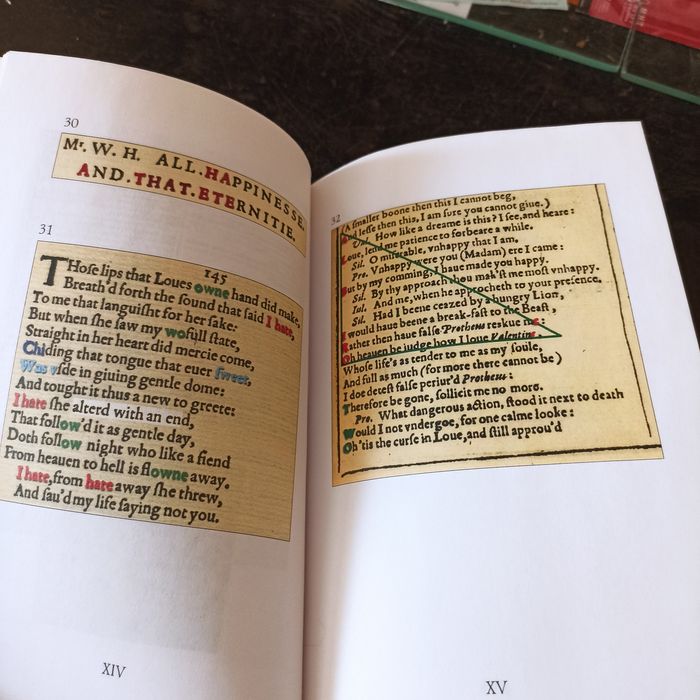 30
Mr. W. H. ALL.HAPPINESSE.
AND.THAT.ETERNITIE.
31
145
THoſe lips that Loues owne hand did make,
Breath'd forth the ſound that ſaid I hate,
To me that languiſht for her ſake:
But when ſhe ſaw my wofull ſtate,
Straight in her heart did mercie come,
Chiding that tongue that euer ſweet,
Was vſde in giuing gentle dome:
And tought it thus a new to greete:
I hate ſhe alterd with an end,
That follow'd it as gentle day,
Doth follow night who like a fiend
From heauen to hell is flowne away.
I hate, from hate away ſhe threw,
And ſau'd my life ſaying not you.
XIV
32
(A ſmaller boone then this I cannot beg,
And leſſe then this, I am ſure you cannot giue.)
How like a dreame is this? I ſee, and heare:
Loue, lend me patience to forbeare a while.
Sil. O miſerable, vnhappy that I am.
Pro. Vnhappy were you (Madam) ere I came:
But by my comming, I haue made you happy.
Sil. By thy approach thou mak'ſt me moſt vnhappy.
Iul. And me, when he approcheth to your preſence.
Sil. Had I beene ceazed by a hungry Lion,
I would haue beene a break-faſt to the Beaſt,
Rather then haue falſe Protheus reskue me:
Oh heauen be judge how I loue Valentine
Whoſe life's as tender to me as my ſoule,
And full as much (for more there cannot be)
I doe deteſt falſe periur'd Protheus:
Therefore be gone, ſollicit me no more.
Pro. What dangerous action, ſtood it next to death
Would I not vndergoe, for one calme looke:
Oh 'tis the curſe in Loue, and ſtill approu'd
XV